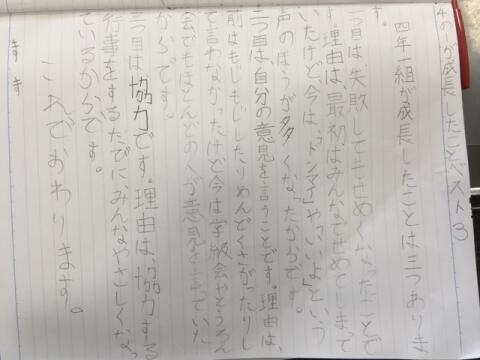 4の1が成長したことベスト3
四年一組が成長したことは三つありま
す。
一つ目は、失敗してもせめなくなったことで
す。理由は、最初はみんなでせめてしまって
いたけど、今は、「ドンマイ」や「いいよ」という
声のほうが多くなったからです。
二つ目は、自分の意見を言うことです。理由は、
前はもじもじしたりめんどくさがったりし
て言わなかったけど今は学級会やとうろん
会でもほとんどの人が意見を言っていた
からです。
三つ目は、協力です。理由は、協力する
行事をするたびに、みんなやさしくなっ
ているからです。
これでおわります。
ます